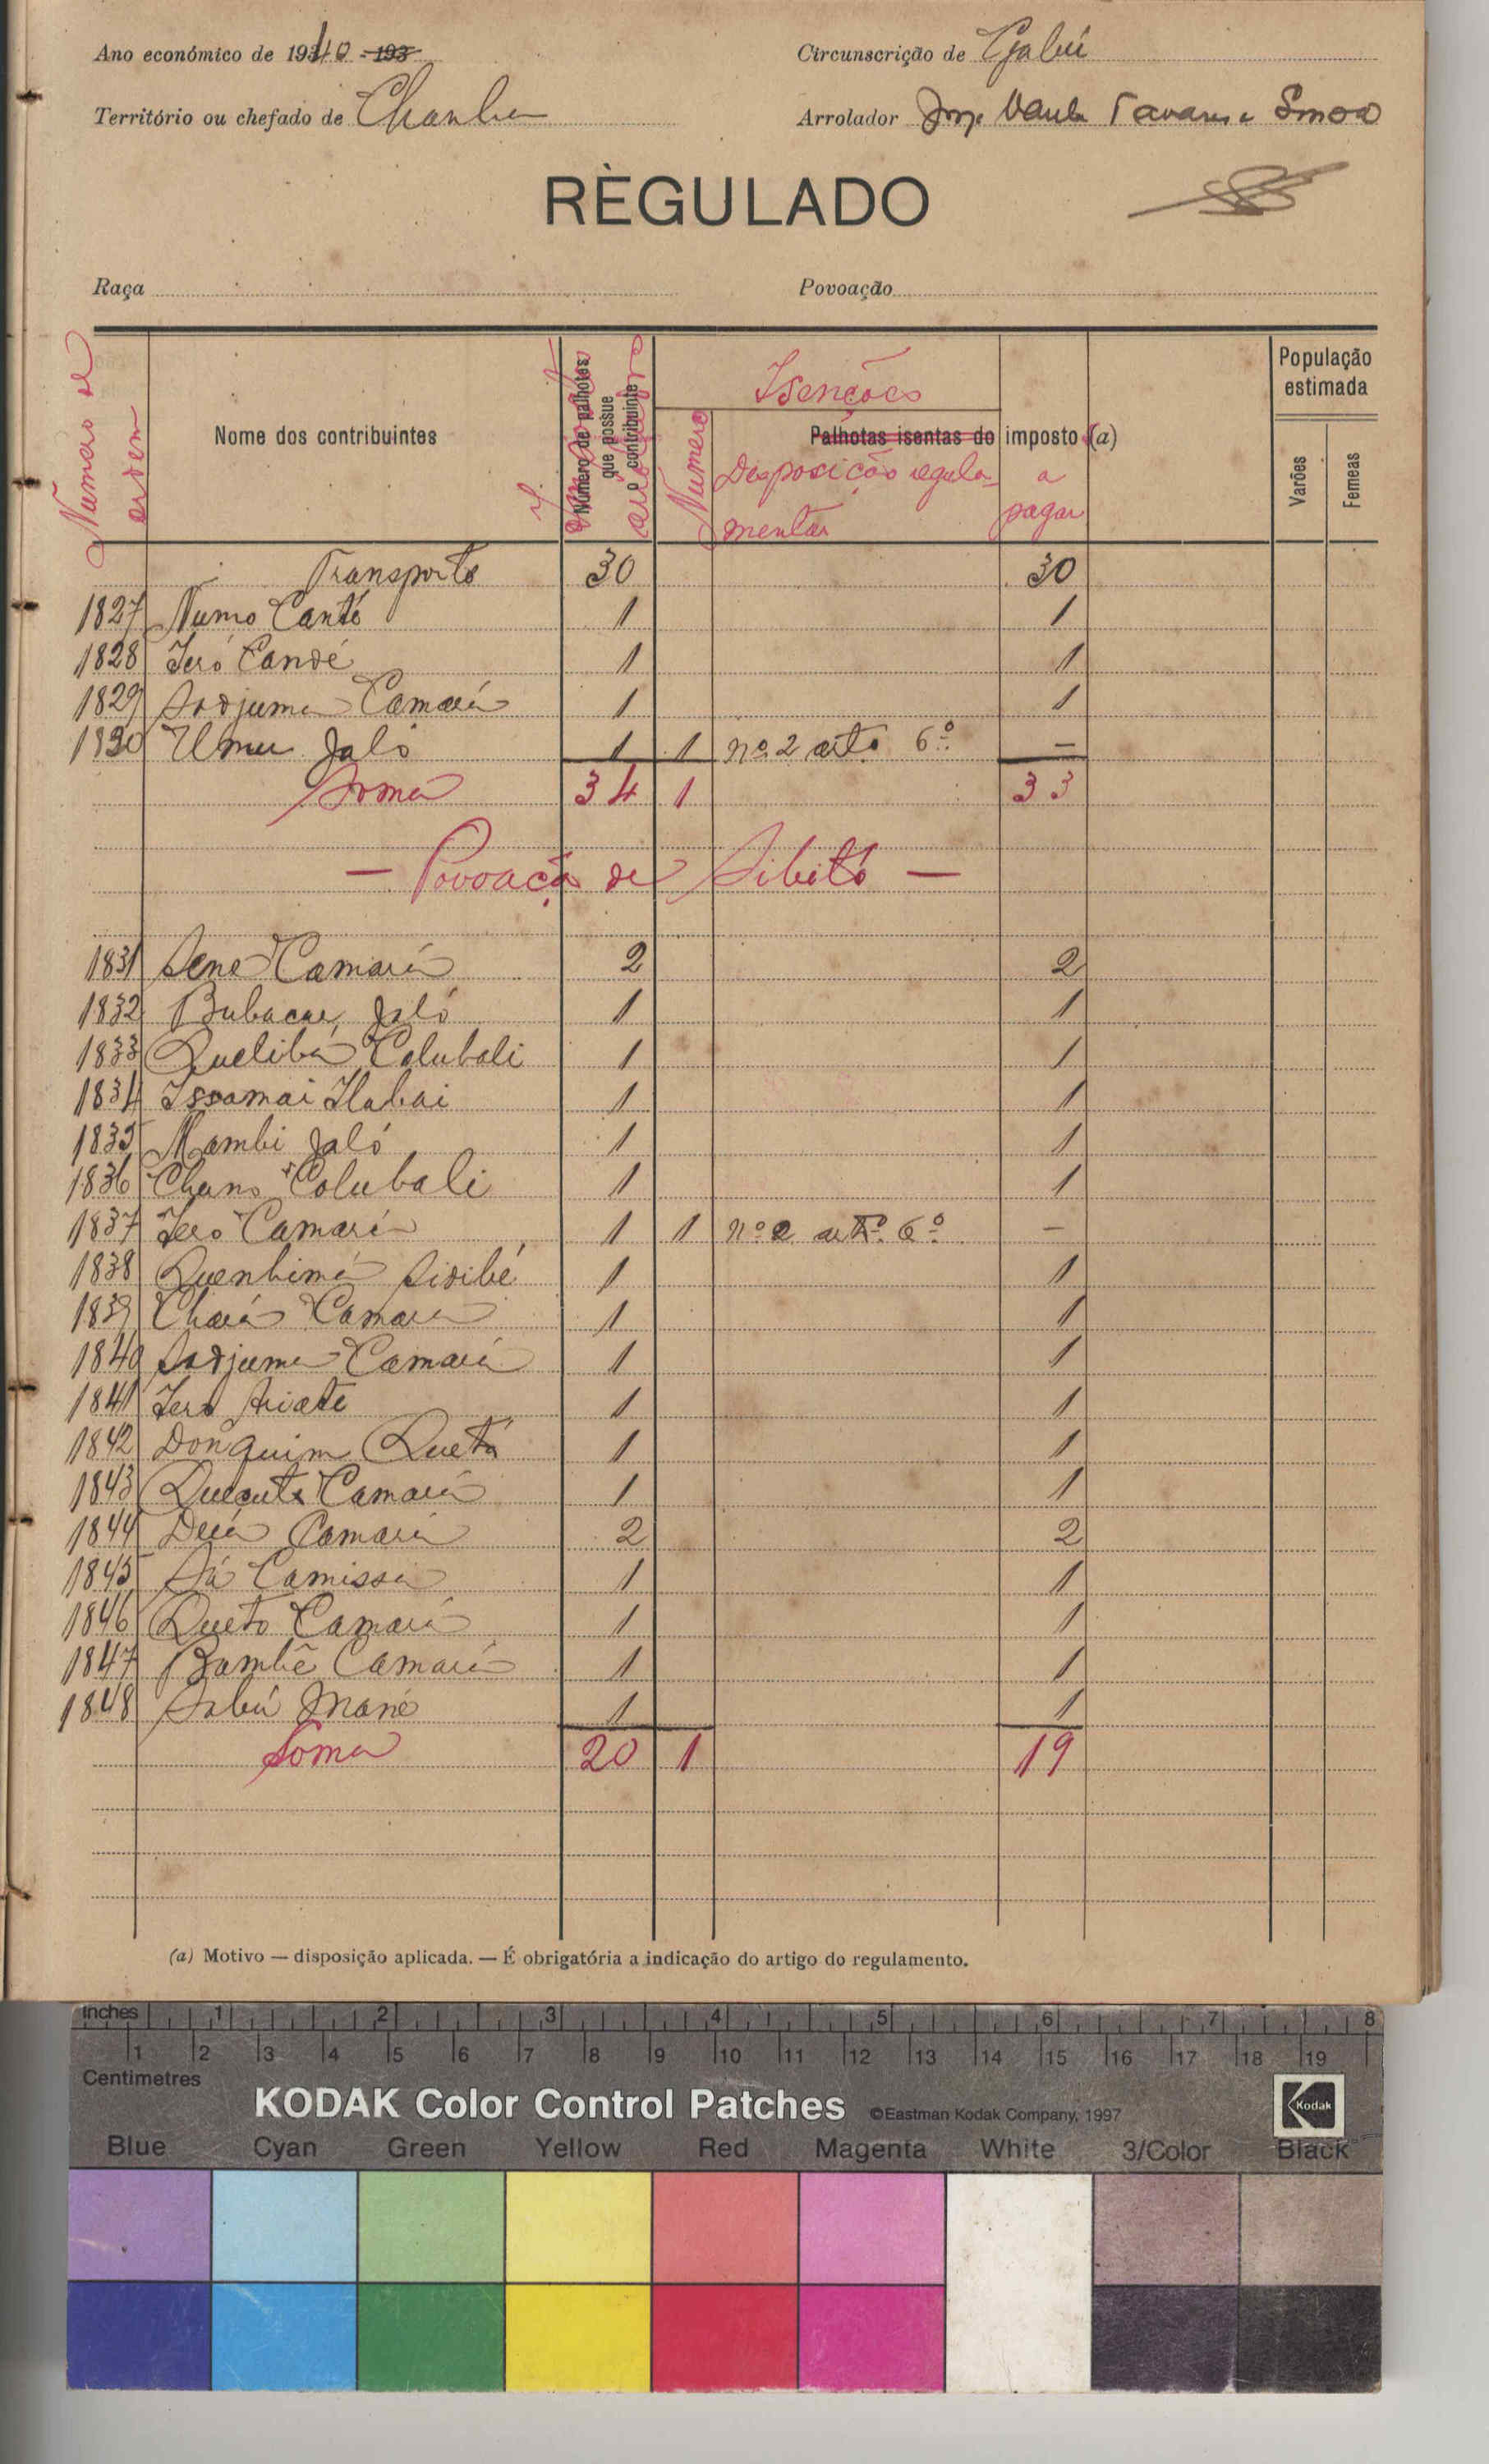 Ano económico de 1940 - 193
Circunscrição de Gabú
Território ou chefado de Chanha
Arrolador Jorge Tavares
RÈGULADO
Raça
Povoação
Numero de ordem
Nome dos contribuintes
Número de palhotas que possue o contribuinte
Isenções
Numero
Palhotas isentas do imposto (a)
Disposição regulamentar
a pagar
População estimada
Varões
Femeas
Transporte 30 30
1827 Numo Cantó 1 1
1828 Jeró Candé 1 1
1829 Sadjuma Camará 1 1
1830 Umu Jaló 1 1 nº 2 artº 6º –
Soma 34 1 33
— Povoação de Sibitó —
1831 Sene Camará 2 2
1832 Bubacar Jaló 1 1
1833 Quelibá Colubali 1 1
1834 Issamai Habai 1 1
1835 Mambi Jaló 1 1
1836 Chano Colubali 1 1
1837 Jero Camará 1 1 nº 2 artº 6º –
1838 Quenhimá Sidibé 1 1
1839 Chará Camará 1 1
1840 Sadjuma Camará 1 1
1841 Jero 1 1
1842 Donquim Quetá 1 1
1843 Quecuta Camará 1 1
1844 Camará 2 2
1845 Sá Camissa 1 1
1846 Queto Camará 1 1
1847 Bambê Camará 1 1
1848 Sabú Mané 1 1
Soma 20 1 19
(a) Motivo — disposição aplicada. — É obrigatória a indicação do artigo do regulamento.
Inches 1 2 3 4 5 6 7 8
1 2 3 4 5 6 7 8 9 10 11 12 13 14 15 16 17 18 19
Centimetres
KODAK Color Control Patches ©Eastman Kodak Company, 1997 Kodak
Blue Cyan Green Yellow Red Magenta White 3/Color Black